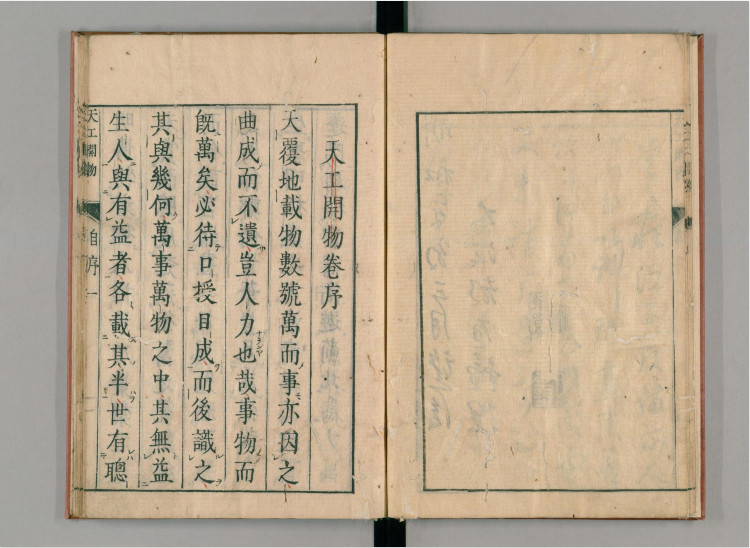 天工開物卷序
天覆地載物數號萬而事亦因之
曲成而不遺豈人力也哉事物而
旣萬矣必待口授目成而後識之
其與幾何萬事萬物之中其無益
生人與有益者各載其半世有聰
天工開物
自序
一